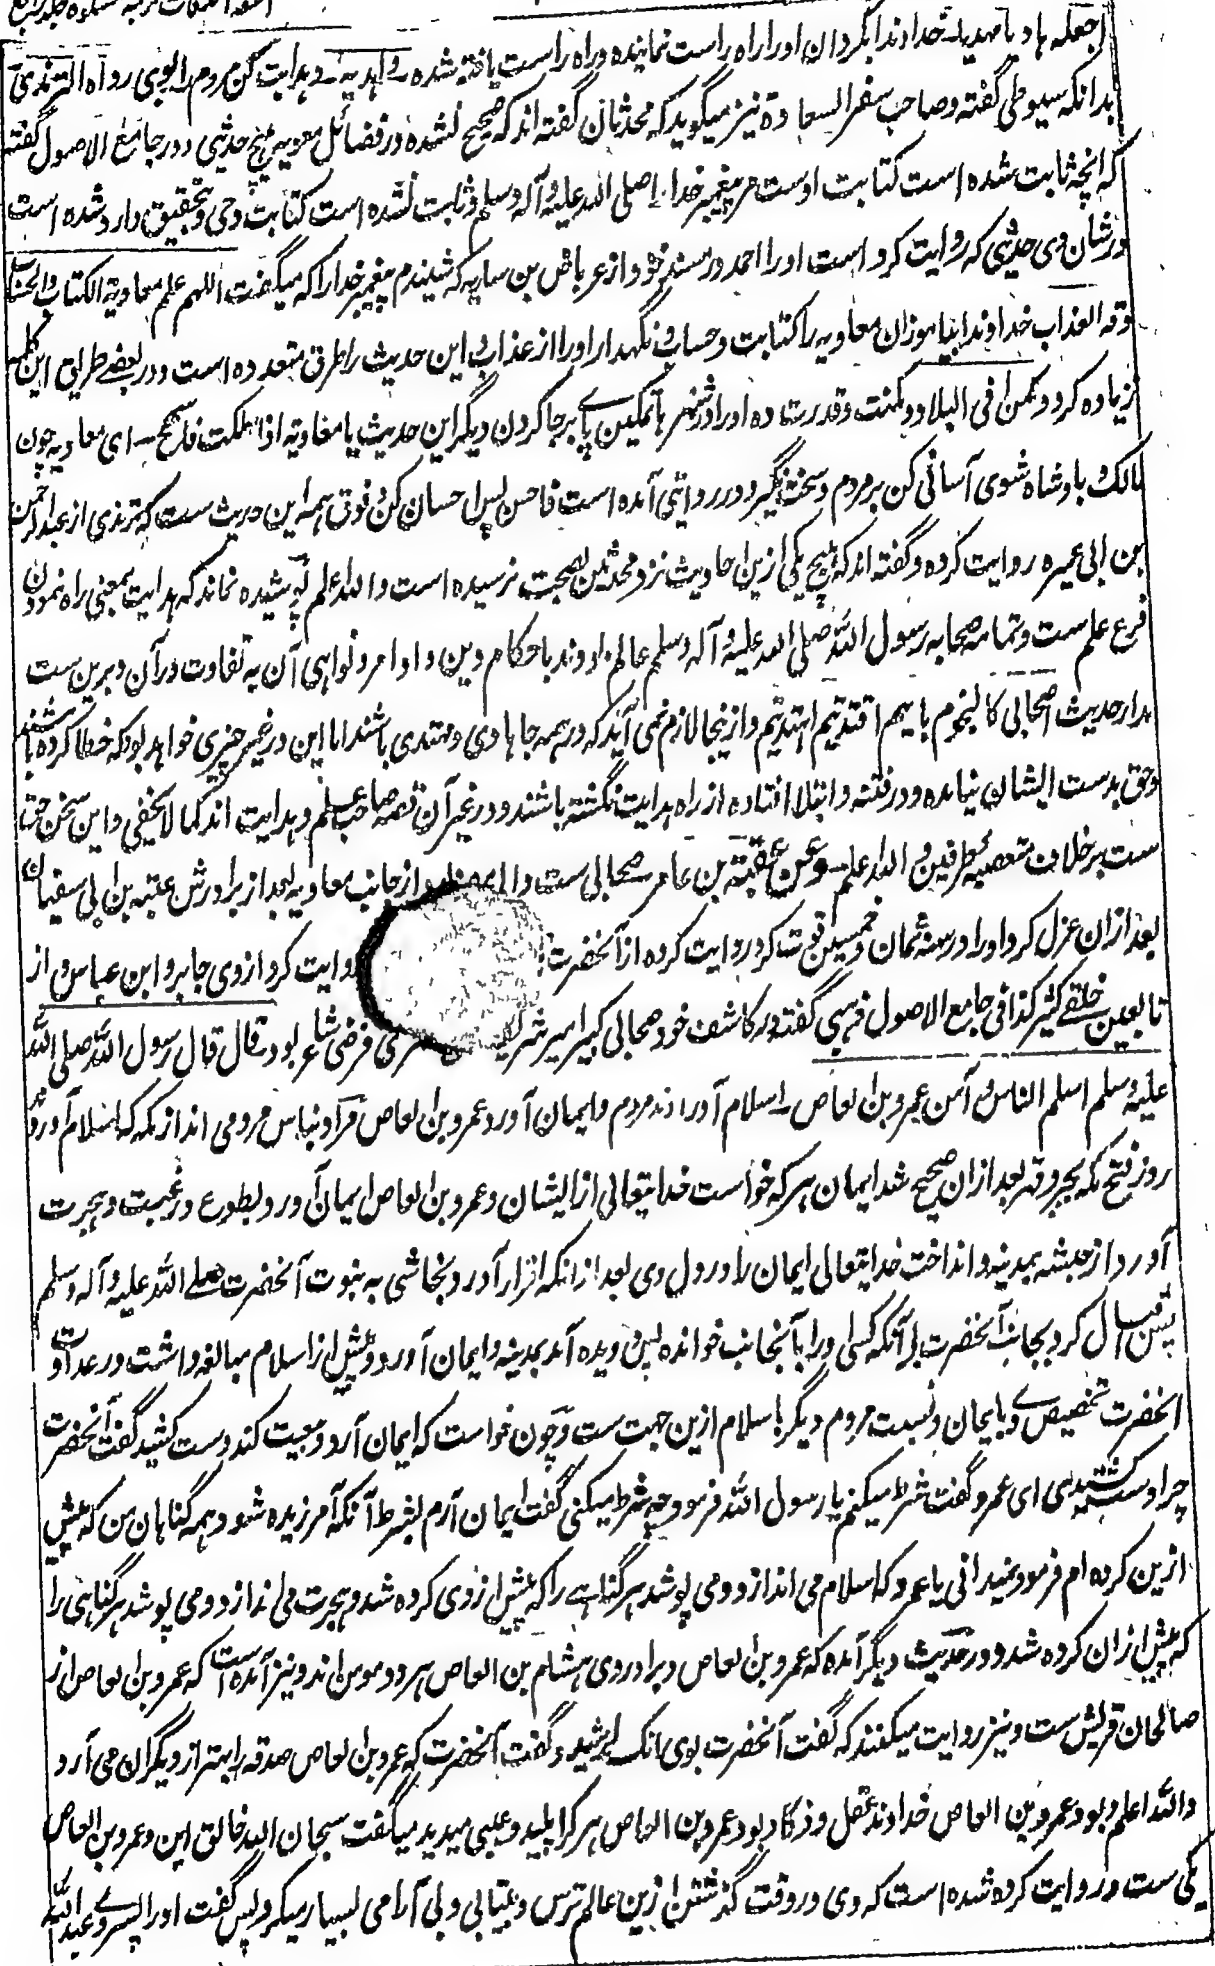 اجعله هادیا مهدیا خداوندا بگردان اورا راه راست نماینده و راه راست یافته شده واهد به و هدایت کن مردم را بوی رواه الترمذی
بدانکه سیوطی گفته و صاحب سفر السعادة نیز میگوید که محدثان گفته اند که صحیح نشده در فضائل معویه هیچ حدیثی و در جامع الاصول گفته
که انچه ثابت شده است کتابت اوست مر پیغمبر خدا را صلی الله علیه و آله وسلم و ثابت نشده است کتابت وحی و تحقیق وارد شده است
در شان وی حدیثی که روایت کرد است اورا احمد در مسند خود از عرباض بن ساریه که شنیدم پیغمبر خدا را که میگفت اللهم علم معاویة الکتاب والحساب
وقه العذاب خداوندا بیاموزان معاویه را کتابت و حساب و نگهدار اورا از عذاب و این حدیث را طرق متعدده است و در بعضے طرق این کلمه
زیاده کرد ومکن فی البلاد و مکنت و قدرت ده اورا در شهر ها تمکین پاے برجا کردن دیگر این حدیث یا معاویة اذا ملکت فاسجح ای معاویه چون
مالک و بادشاه شوی آسانی کن بر مردم و سخت مگیر و در روایتی آمده است فاحسن پس احسان کن و فوق همه این حدیث ست که ترمذی از عبدالرحمن
بن ابی عمیره روایت کرده و گفته اند که هیچ یکی ازین احادیث نزد محدثین بصحت نرسیده است والله اعلم پوشیده نماند که هدایت بمعنی راه نمودن
فرع علم ست و تمامه صحابه رسول الله صلی الله علیه و آله وسلم عالم بودند باحکام دین و اوامر و نواهی آن به تفاوت در آن و برین ست
مدار حدیث اصحابی کالنجوم بایهم اقتدیتم اهتدیتم و ازینجا لازم نمی آید که در همه جا هادی و مهتدی باشند اما این در غیر چیزی خواهد بود که خطا کرده باشند
و حق بدست ایشان نیامده و در فتنه و ابتلا افتاده از راه هدایت نگشته باشند و در غیر آن قصه صاحب علم و هدایت اند کما لا یخفی و این سخن حق
ست بر خلاف متعصبه طرفین و الله اعلم وعن عقبة بن عامر صحابی ست والی از جانب معاویه بعد از برادرش عتبه بن ابی سفیان
بعد ازان عزل کرد اورا در سنه ثمان و خمسین فوت کرد روایت کرده از آنحضرت روایت کرد ازوی جابر و ابن عباس و از
تابعین خلقے کثیر کذا فی جامع الاصول ذهبی گفته در کاشف خود صحابی کبیر امیر شریف فرضی شاعر بود قال قال رسول الله صلی الله
علیه وسلم اسلم الناس و آمن عمرو بن العاص اسلام آوردند مردم و ایمان آورد عمرو بن العاص مراد بناس مردمی اند از مکه که اسلام آوردند
روز فتح مکه بجبر و قهر بعد ازان صحیح شد ایمان هر که خواست خدایتعالی از ایشان و عمرو بن العاص ایمان آورد بطوع و رغبت و هجرت
آورد از حبشه بمدینه و انداخت خدایتعالی ایمان را در دل وی بعد از انکه اقرار آورد نجاشی به نبوت آنحضرت صلے الله علیه و آله وسلم
پس اقبال کرد بجانب آنحضرت بی آنکه کسی اورا بآنجانب خوانده پس دویده آمد بمدینه و ایمان آورد و پیش از اسلام مبالغه داشت در عداوت
آنحضرت تخصیص وے بایمان و نسبت مردم دیگر باسلام ازین جهت ست و چون خواست که ایمان آرد و بیعت کند دست کشید گفت آنحضرت
چرا دست کشیدی ای عمرو گفت شرط میکنم یا رسول الله فرمود چه شرط میکنی گفت ایمان آرم بشرط آنکه آمرزیده شود همه گناهان من که پیش
ازین کرده ام فرمود نمیدانی یا عمرو که اسلام می اندازد و می پوشد هر گناهے را که پیش از وی کرده شد و هجرت می اندازد و می پوشد هر گناهی را
که پیش ازان کرده شد و در حدیث دیگر آمده که عمرو بن العاص و برادر وی هشام بن العاص هر دو مومن اند و نیز آمده است که عمرو بن العاص از
صالحان قریش ست و نیز روایت میکنند که گفت آنحضرت بوی گفت آنحضرت که عمرو بن العاص صدقه را بهتر از دیگران می آرد
والله اعلم و بود عمرو بن العاص خداوند عقل و ذکا و بود عمرو بن العاص هر کرا پلید و غبی میدید میگفت سبحان الله خالق این و عمرو بن العاص
یکی ست در روایت کرده شده است که وی در وقت گذشتن ازین عالم ترس و بیتابی و بی آرامی بسیار میکرد پس گفت اورا پسر وے عبدالله